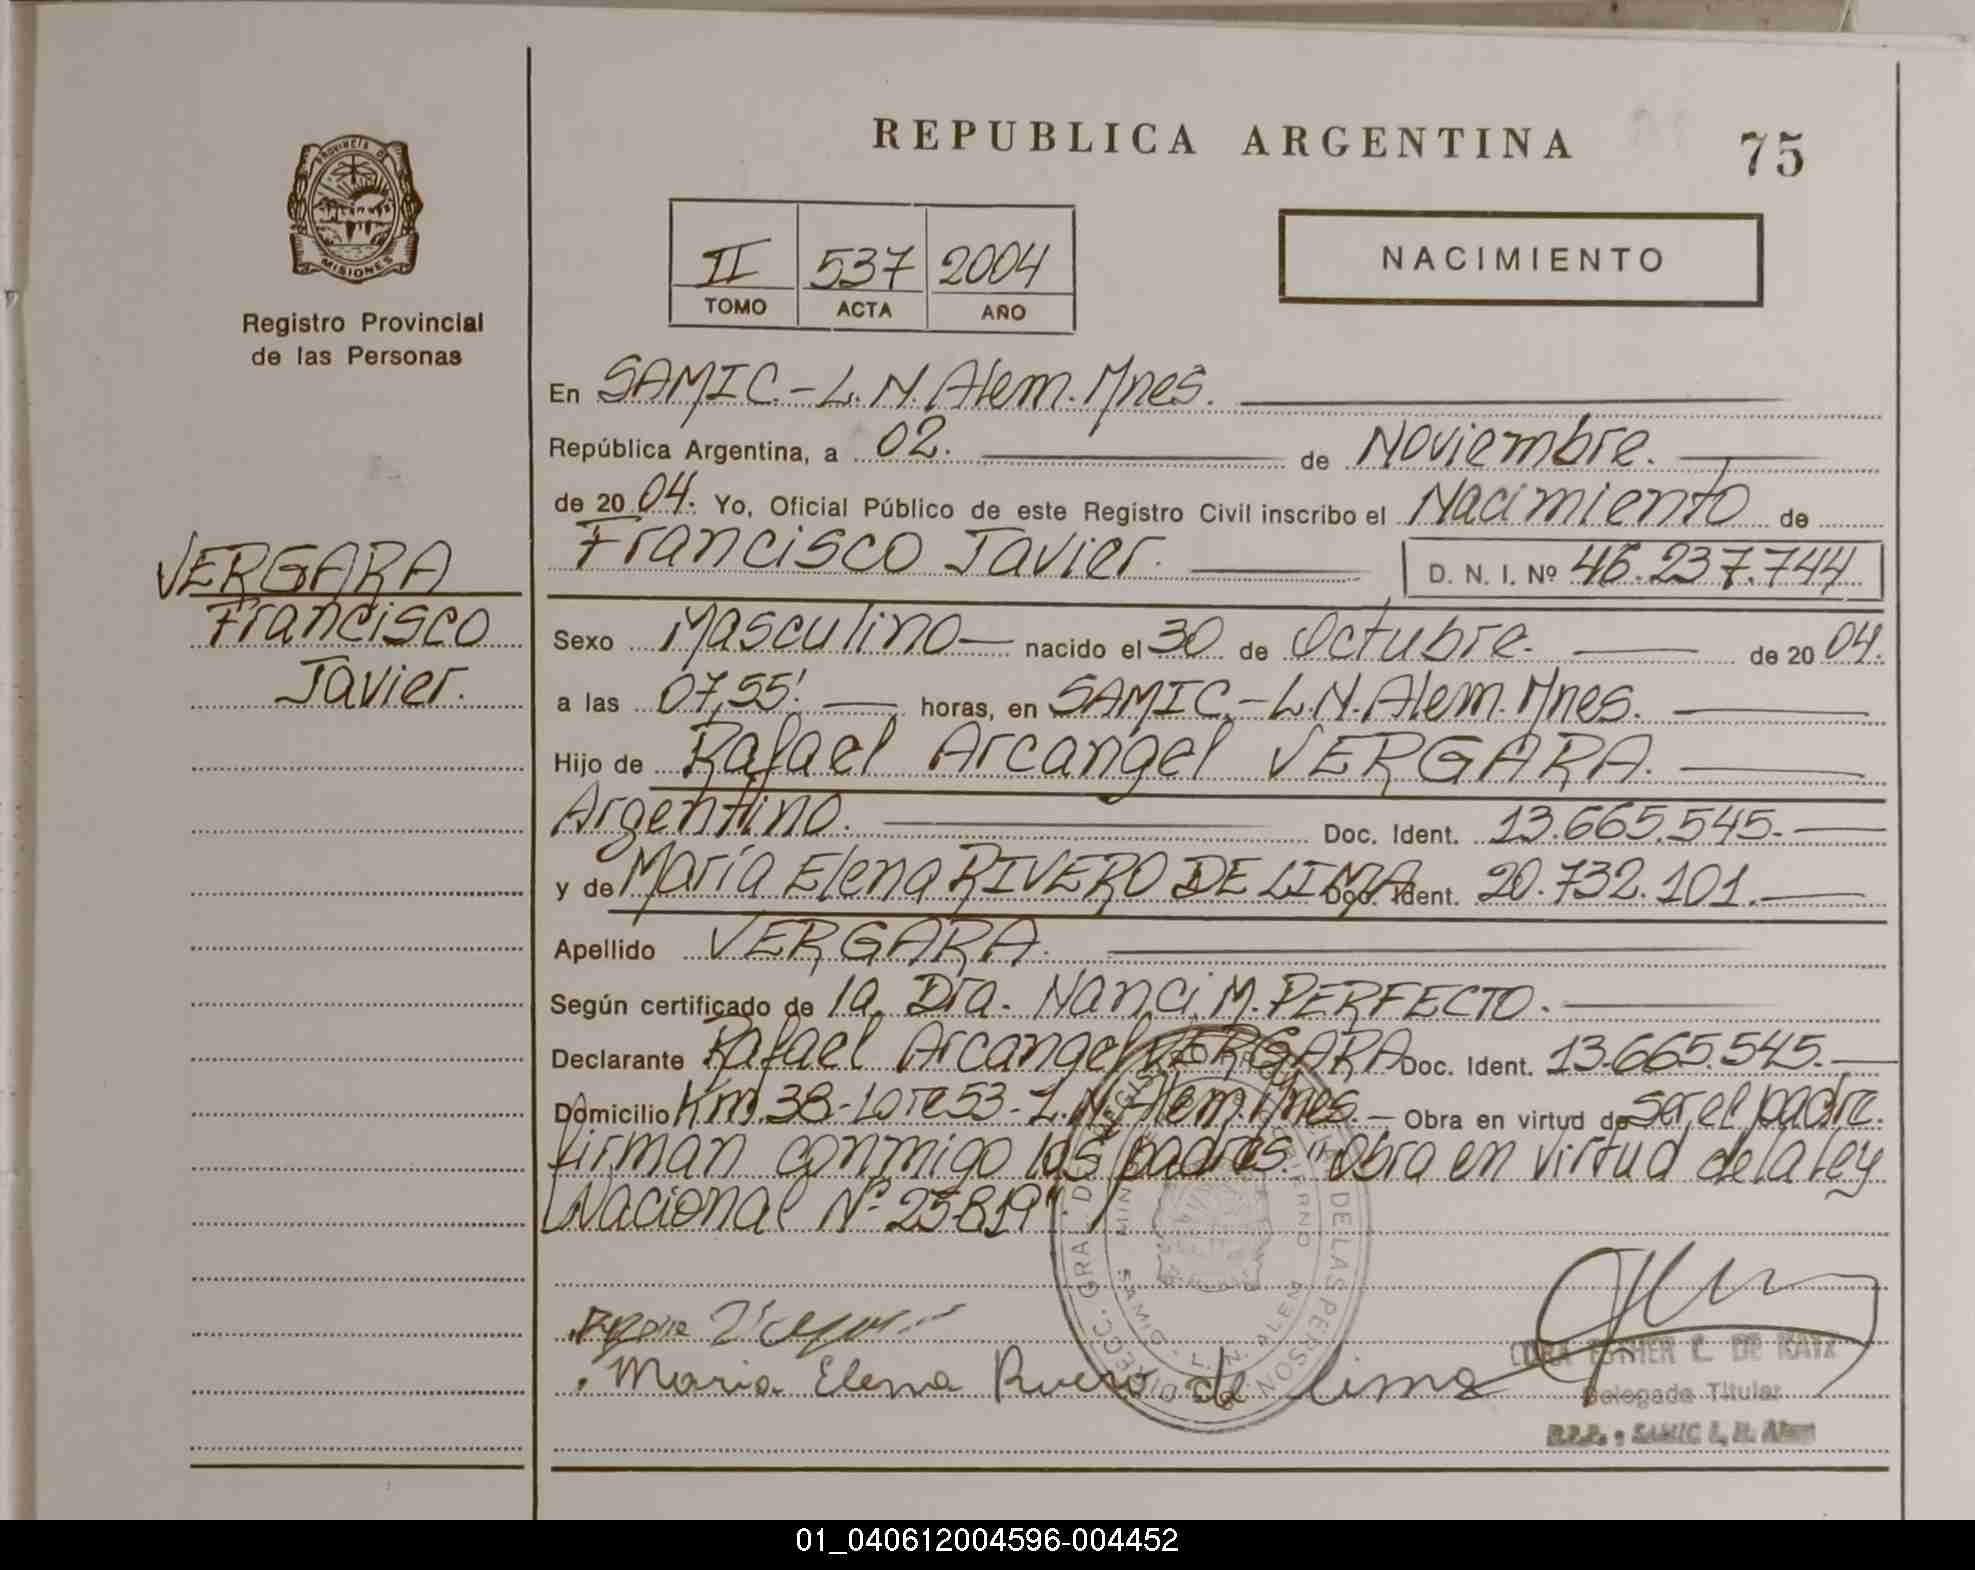 REPUBLICA ARGENTINA
75
PROVINCIA DE
MISIONES
Registro Provincial
de las Personas
II 537 2004
TOMO ACTA AÑO
NACIMIENTO
VERGARA
Francisco
Javier.
En SAMIC.-L.N.Alem.Mnes.
República Argentina, a 02. de Noviembre.
de 2004. Yo, Oficial Público de este Registro Civil inscribo el Nacimiento de
Francisco Javier. D. N. I. Nº 46.237.744
Sexo Masculino nacido el 30 de Octubre. de 2004.
a las 07,55' horas, en SAMIC.-L.N.Alem.Mnes.
Hijo de Rafael Arcangel VERGARA.
Argentino. Doc. Ident. 13.665.545.
y de María Elena RIVERO DE LIMA Doc. Ident. 20.732.101.
Apellido VERGARA.
Según certificado de la Dra. Nanci M. PERFECTO.
Declarante Rafael Arcangel VERGARA Doc. Ident. 13.665.545.
Domicilio Km.38-Lote 53-L.N.Alem.Mnes. Obra en virtud de ser el padre.
firman conmigo los padres. "Obra en virtud de la Ley
Nacional Nº 25819".
DIRECC. GRAL. DEL REGISTRO DE LAS PERSONAS
SAMIC - L. N. ALEM
Maria Elena Rivero de lima
ESTHER C. DE KATZ
Delegada Titular
R.P.P. - SAMIC L. N. Alem
01_040612004596-004452